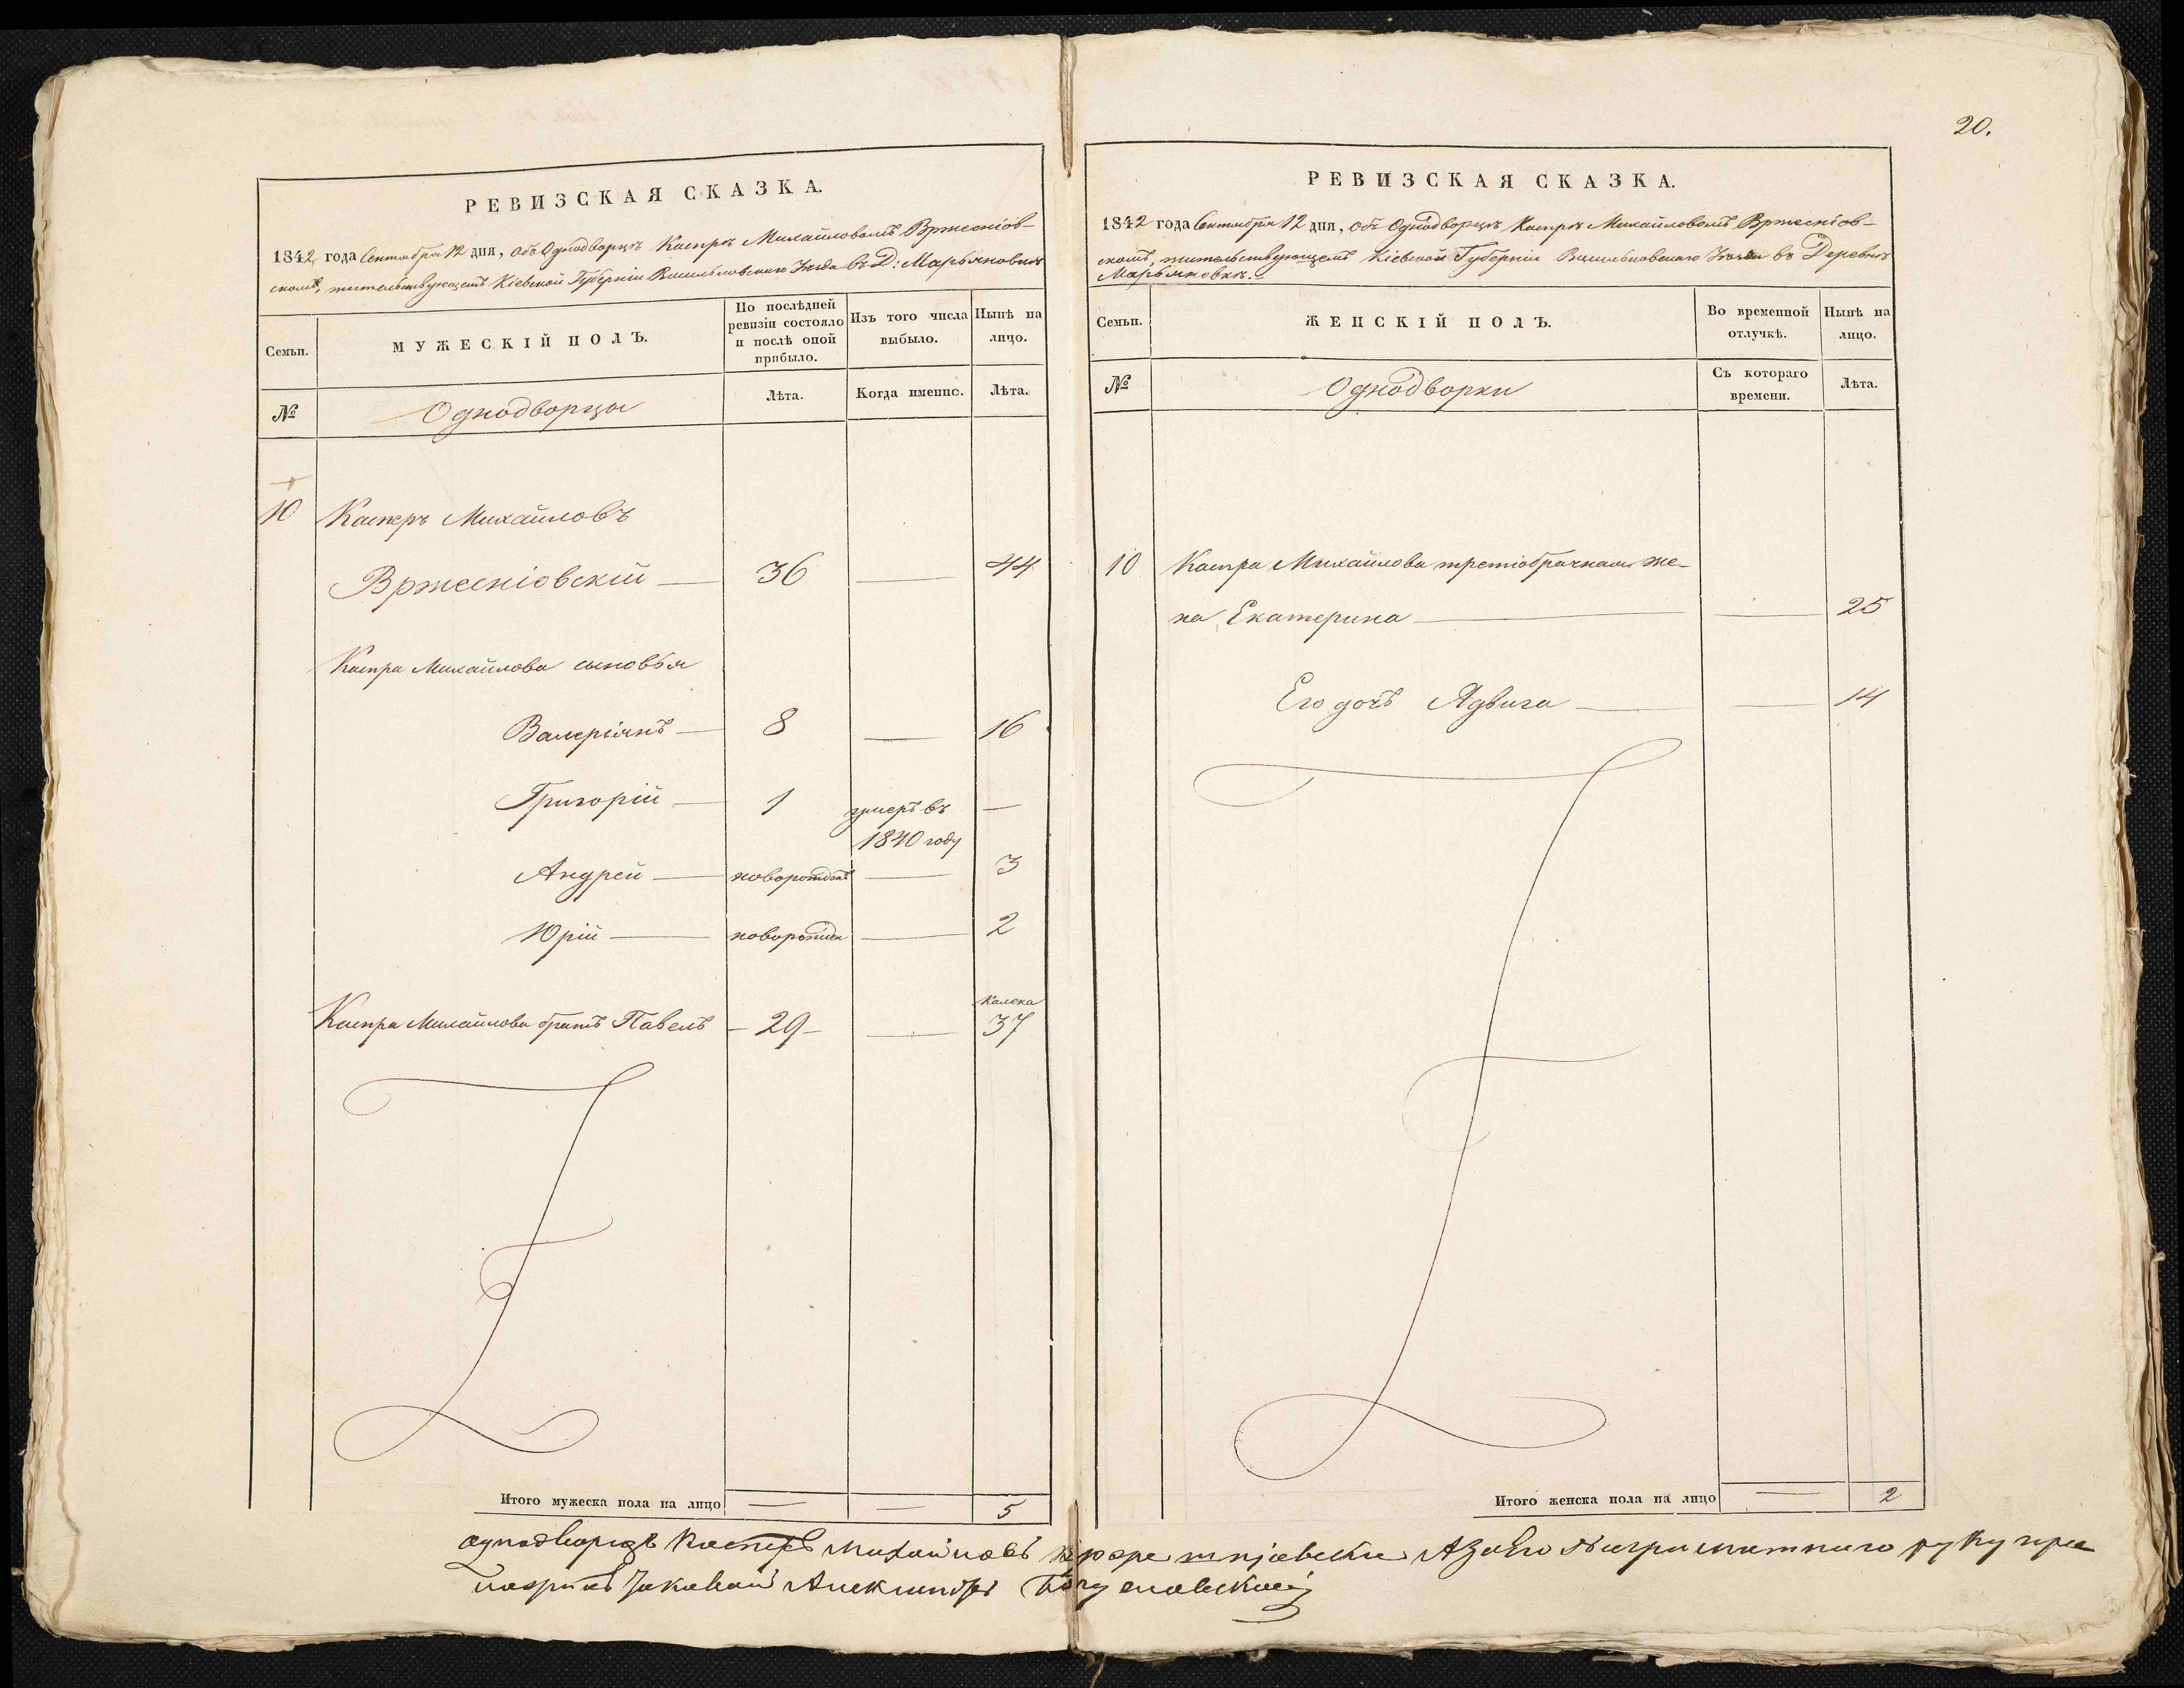 20.
РЕВИЗСКАЯ СКАЗКА.
1842 года Сентября 12 дня, объ Однодворцѣ Каспрѣ Михайловомъ Вржесніов-
скомъ, жительствующемъ Кіевской Губерніи Васильковскаго Уезда въ Д: Марьяновкѣ
Семьи.
МУЖЕСКІЙ ПОЛЪ.
По послѣдней
ревизіи состояло
и послѣ оной
прибыло.
Изъ того числа
выбыло.
Нынѣ на
лицо.
№
Однодворцы
Лѣта.
Когда именно.
Лѣта.
10 Касперъ Михайловъ
Вржесніовскій 36 — 44
Каспра Михайлова сыновья
Валеріянъ 8 — 16
Григорій 1 умеръ въ —
1840 году
Андрей новорожденъ — 3
Юрій новорожден — 2
калека
Каспра Михайлова братъ Павелъ — 29 — — 37
Итого мужеска пола на лицо — — 5
РЕВИЗСКАЯ СКАЗКА.
1842 года Сентября 12 дня, объ Однодворцѣ Каспрѣ Михайловомъ Вржесніов-
скомъ, жительствующемъ Кіевской Губерніи Васильковскаго Уезда въ Деревнѣ
Марьяновкѣ.
Семьи.
ЖЕНСКІЙ ПОЛЪ.
Во временной
отлучкѣ.
Нынѣ на
лицо.
№
Однодворки
Съ котораго
времени.
Лѣта.
10 Каспра Михайлова третіобрачная же-
на Екатерина — — 25
Его дочь Ядвига — — 14
Итого женска пола на лицо — 2
однодворецъ Касперъ Михайловъ А заего руку
Александръ